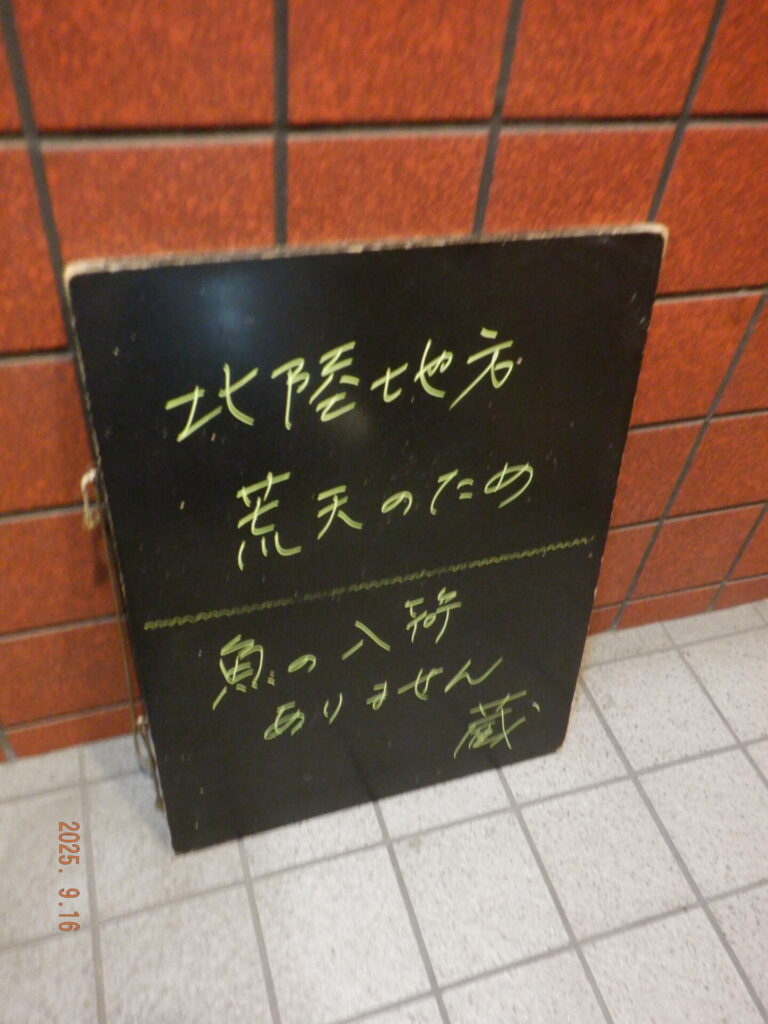 北陸地方
荒天のため
魚の入荷
ありません
蔵
2025. 9.16